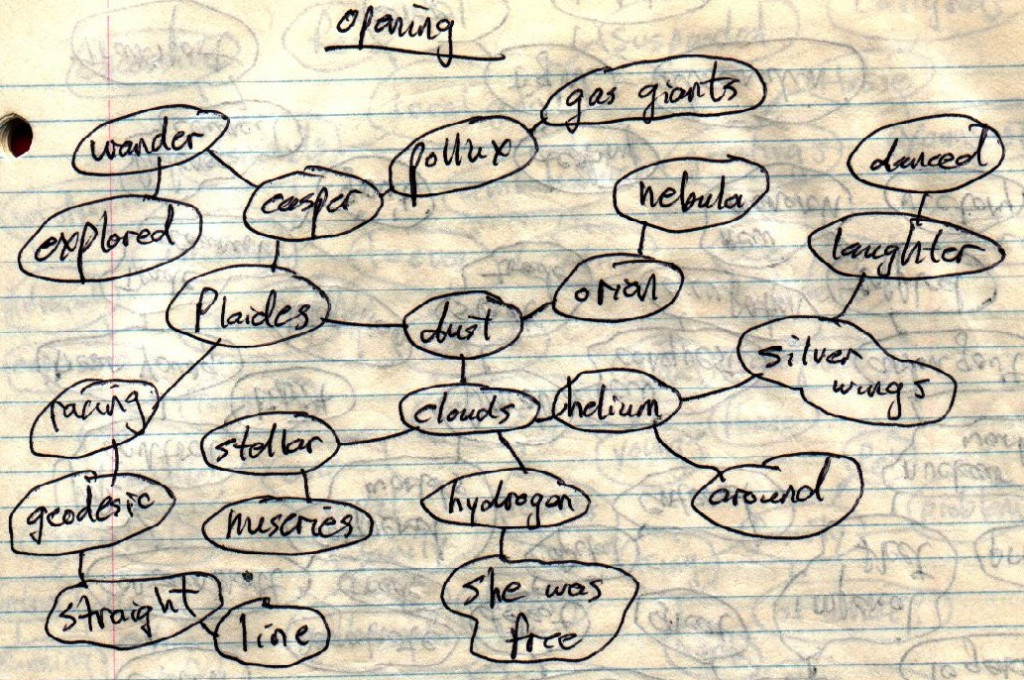 opening
gas giants
wander
pollux
danced
casper
nebula
explored
laughter
orion
Plaides
dust
silver
wings
racing
clouds
helium
stellar
geodesic
miseries
hydrogen
around
straight
she was
free
line